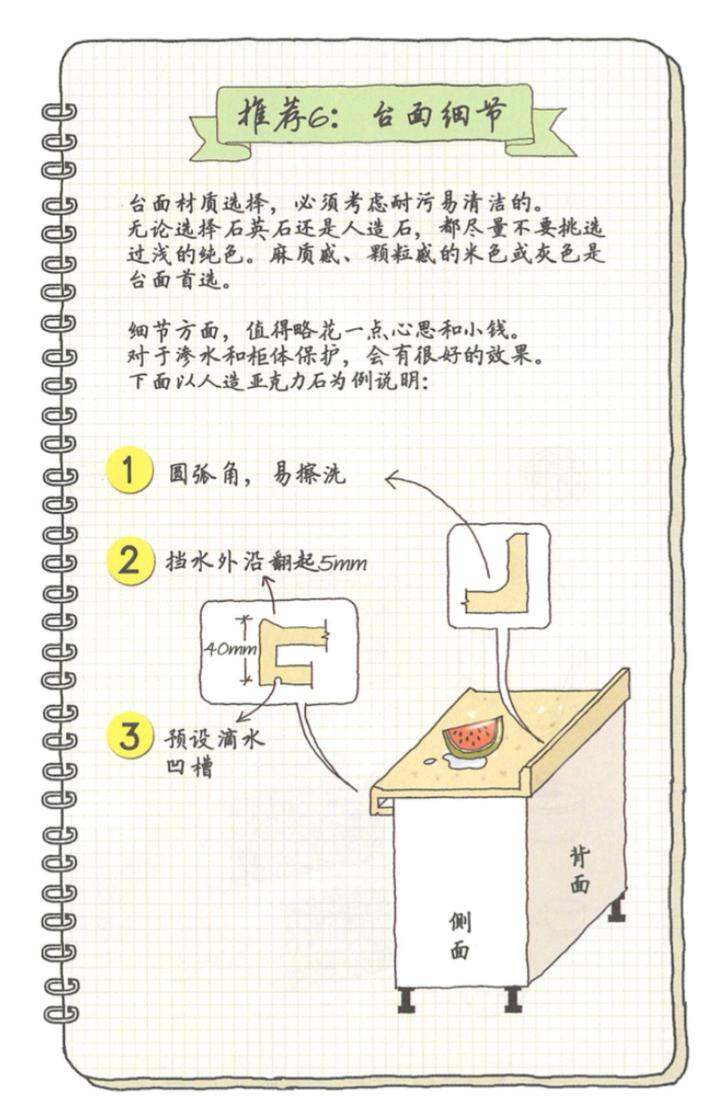 推荐6：台面细节
台面材质选择，必须考虑耐污易清洁的。
无论选择石英石还是人造石，都尽量不要挑选
过浅的纯色。麻质感、颗粒感的米色或灰色是
台面首选。
细节方面，值得略花一点心思和小钱。
对于渗水和柜体保护，会有很好的效果。
下面以人造亚克力石为例说明：
1 圆弧角，易擦洗
2 挡水外沿翻起5mm
40mm
3 预设滴水
凹槽
背面
侧面